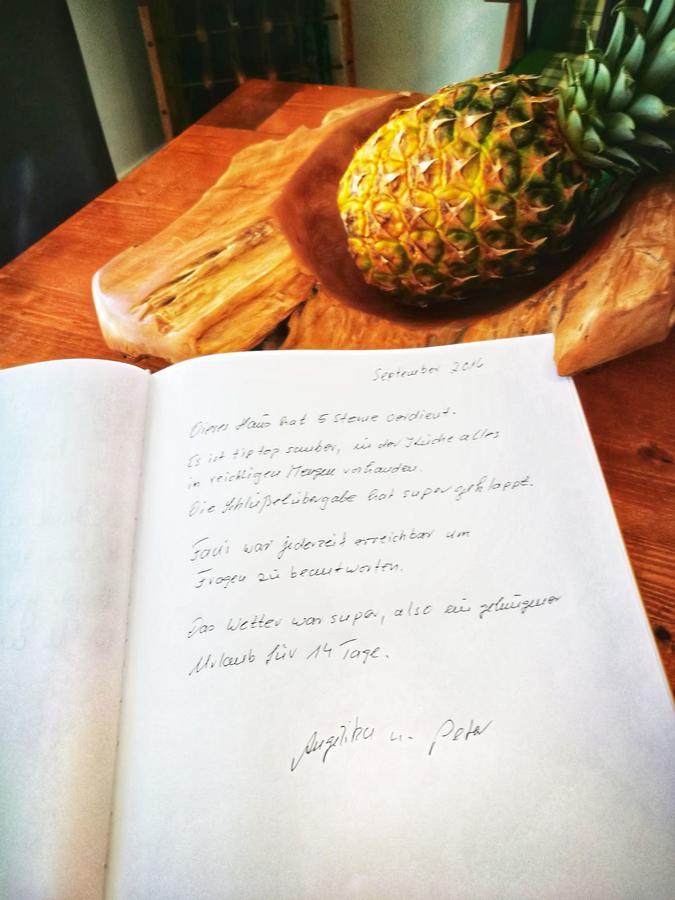 September 2016
Dieses Haus hat 5 Sterne verdient.
Es ist tip top sauber, in der Küche alles
in reichligen Mengen vorhanden.
Die Schlüßelübergabe hat super geklappt.
war jederzeit erreichbar um
Fragen zu beantworten.
Das Wetter war super, also ein gelungener
Urlaub für 14 Tage.
Angelika u. Peter